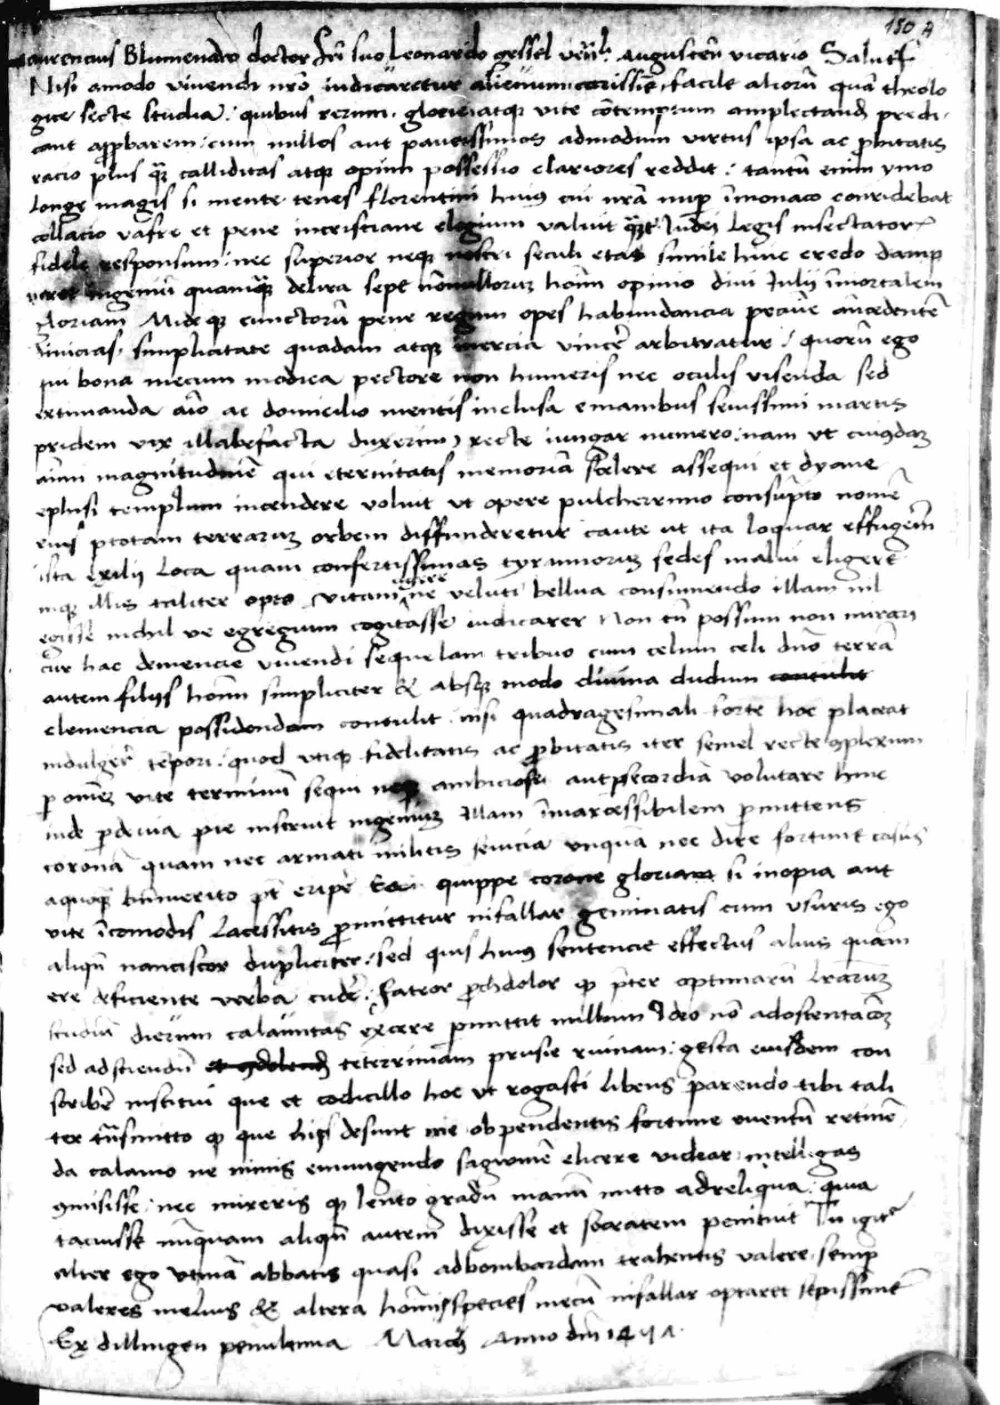 150 A
Laurencius Blumenaw doctor Fri suo Leonardo gessel ven. augusten vicario Salute
Nisi amodo vivendi nro iudicaretur alienum carissime, facile alioru quam theolo
gice secte studia, quibus rerum glorie atque vite contemptum amplectand predi
cant approbarem, cum nullos aut paucissimos admodum virtus ipsa ac probitatis
racio plus quam calliditas atque opum possessio clariores reddit, tantum enim ymo
longe magis si mente tenes florentini huius cui nram nup in monaco conridebat
collacio vafre et pene incristiane elogium valuit Iudei legis insectator
fidele responsum, nec superior neque nostri seculi etas simile huic credo damp
ingeniu quamquam delira sepe nonnullorum hoim opinio divi Iulii immortalem
gloriam Mideque cunctoru pene regum opes habundancia antecedente
simplicitate quadam atque inercia vincere arbitratur, quoru ego
qui bona mecum modica pectore non humeris nec oculis visenda sed
extimanda aio ac domicilio mentis inclusa e manibus sevissimi martis
pridem vix illabefacta duxerim, recte iungar numero, nam ut cuiusdam
aimi magnitudine qui eternitatis memoria scelere assequi et dyane
ephesi templum incendere voluit ut opere pulcherrimo consumpto nome
eius p totam terrarum orbem diffunderetur caute ut ita loquar effugere
ista exilii loca quam confertissimas tyrannorum sedes malui eligere
inque illis taliter opto vitam ne veluti bellua consumendo illam nil
egisse nichil ve egregium cogitasse iudicarer Non tn possum non mirari
cur hac demencie vivendi sequelam tribuo cum celum celi dno terra
autem filiis hoim simpliciter & absque modo divina dudum contulit
clemencia possidendam contulit, nisi quadragesimali forte hoc placeat
indulgere tempori, quod utique fidelitatis ac probitatis iter semel recte complexum
p omne vite terminum sequi neque ambiciose aut secordia volutare hinc
inde p devia pie instruit ingenium Illam inmarcessibilem pmittens
corona quam nec armati militis sevicia unquam nec dire fortune casus
a quoque immerito pt eripe quippe corone gloriam si inopia aut
vite incomodis lacessitis promittitur ni fallar geminatis cum usuris ego
aliqn nanciscor dupliciter, sed quis huius sentencie effectus alius quam
ere deficiente verba cudere, fateor prohdolor qp preter optimaru lrarum
studia dierum calamitas exercere pmittit nullum Ideo no ad ostentacoem
sed ad sciendu teterrimam prusie ruinam, gesta eiusdem con
scribere institui que et codicillo hoc ut rogasti libens parendo tibi tali
ter transmitto qp que hiis desunt me ob pendentis fortune eventu retinen
da calamo ne nimis emungendo sagwine elicere videar, intelligas
omisisse, nec mireris qp lento gradu manu mitto ad reliqua, quia
tacuisse nunquam aliqn autem dixisse et socratem penituit Tu igitr
alter ego utina abbatis quasi ad bombardam trahentis valere semp
valeres melius & altera hois species mecu ni fallar optaret sepissime
Ex dillingen penultima Marcii Anno dni 1457.